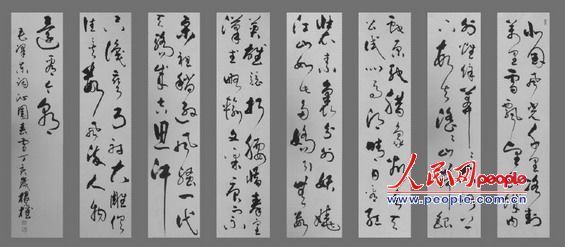 北国风光千里冰封
万里雪飘望长城内
外惟余莽莽大河上
下顿失滔滔山舞银
蛇原驰蜡象欲与天
公试比高须晴日看红
装素裹分外妖娆
江山如此多娇引无数
英雄竞折腰惜秦皇
汉武略输文采唐宗
宋祖稍逊风骚一代
天骄成吉思汗
只识弯弓射大雕俱
往矣数风流人物
还看今朝
毛泽东词沁园春雪丁亥岁
人民网
www.people.com.cn